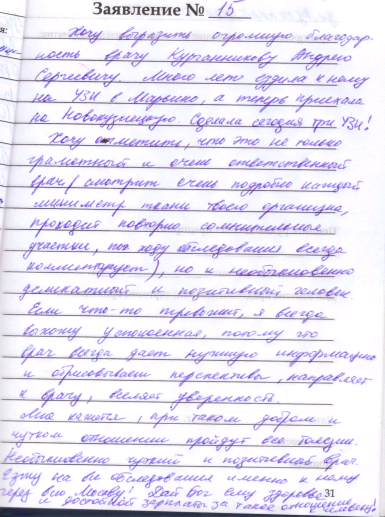 Заявление № 15
Хочу выразить огромную благодар-
ность врачу Курганникову Андрею
Сергеевичу. Много лет ездила к нему
на УЗИ в Марьино, а теперь приехала
на Новокузнецкую. Сделала сегодня три УЗИ!
Хочу отметить, что это не только
грамотный и очень ответственный
врач (смотрит очень подробно каждый
миллиметр ткани твоего организма,
проходит повторно сомнительные
участки, по ходу обследования всегда
комментирует), но и необыкновенно
деликатный и позитивный человек.
Если что-то тревожит, я всегда
выхожу успокоенная, потому что
врач всегда дает нужную информацию
и обрисовывает перспективы, направляет
к врачу, вселяет уверенность.
Мне кажется, при таком добром и
чутком отношении пройдут все болезни.
Необыкновенно чуткий и позитивный врач.
Езжу на все обследования именно к нему
через всю Москву! Дай Бог ему здоровья
и достойной зарплаты за такое отношение
31